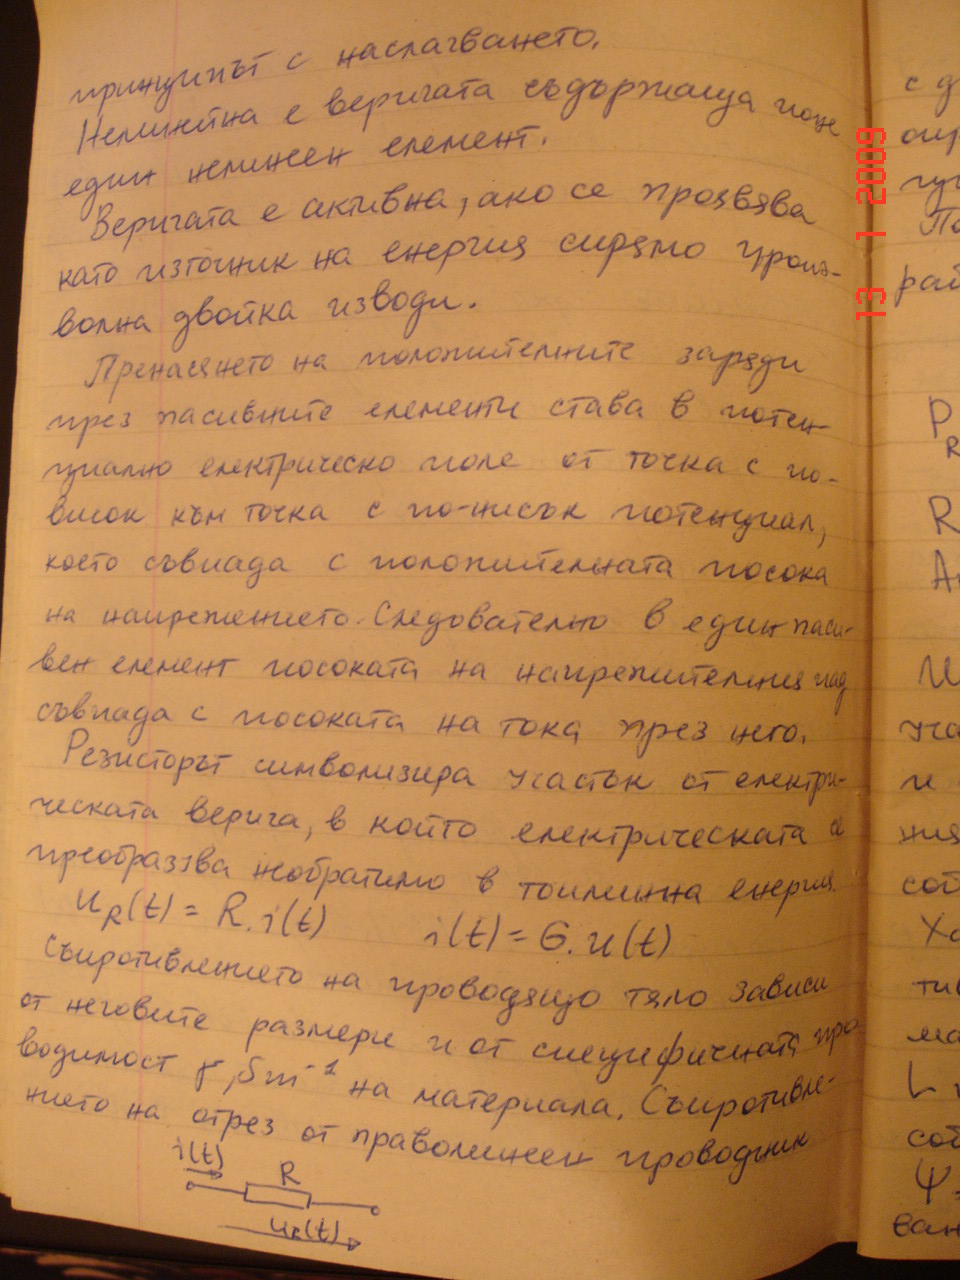 принципът с наслагването.
Нелинейна е веригата съдържаща поне
един нелинеен елемент.
Веригата е активна, ако се проявява
като източник на енергия спрямо произ-
волна двойка изводи.
Пренасянето на положителните заряди
през пасивните елементи става в потен-
циално електрическо поле от точка с по-
висок към точка с по-нисък потенциал,
което съвпада с положителната посока
на напрежението. Следователно в един паси-
вен елемент посоката на напрежителния пад
съвпада с посоката на тока през него.
Резисторът символизира участък от електри-
ческата верига, в който електрическата се
преобразува необратимо в топлинна енергия.
u_R(t) = R.i(t) i(t) = G.u(t)
Съпротивлението на проводящо тяло зависи
от неговите размери и от специфичната про-
водимост γ, Sm⁻¹ на материала. Съпротивле-
нието на отрез от праволинеен проводник
i(t)
R
u_R(t)
13 1 2009
с д
P_R
R
L
Ψ =